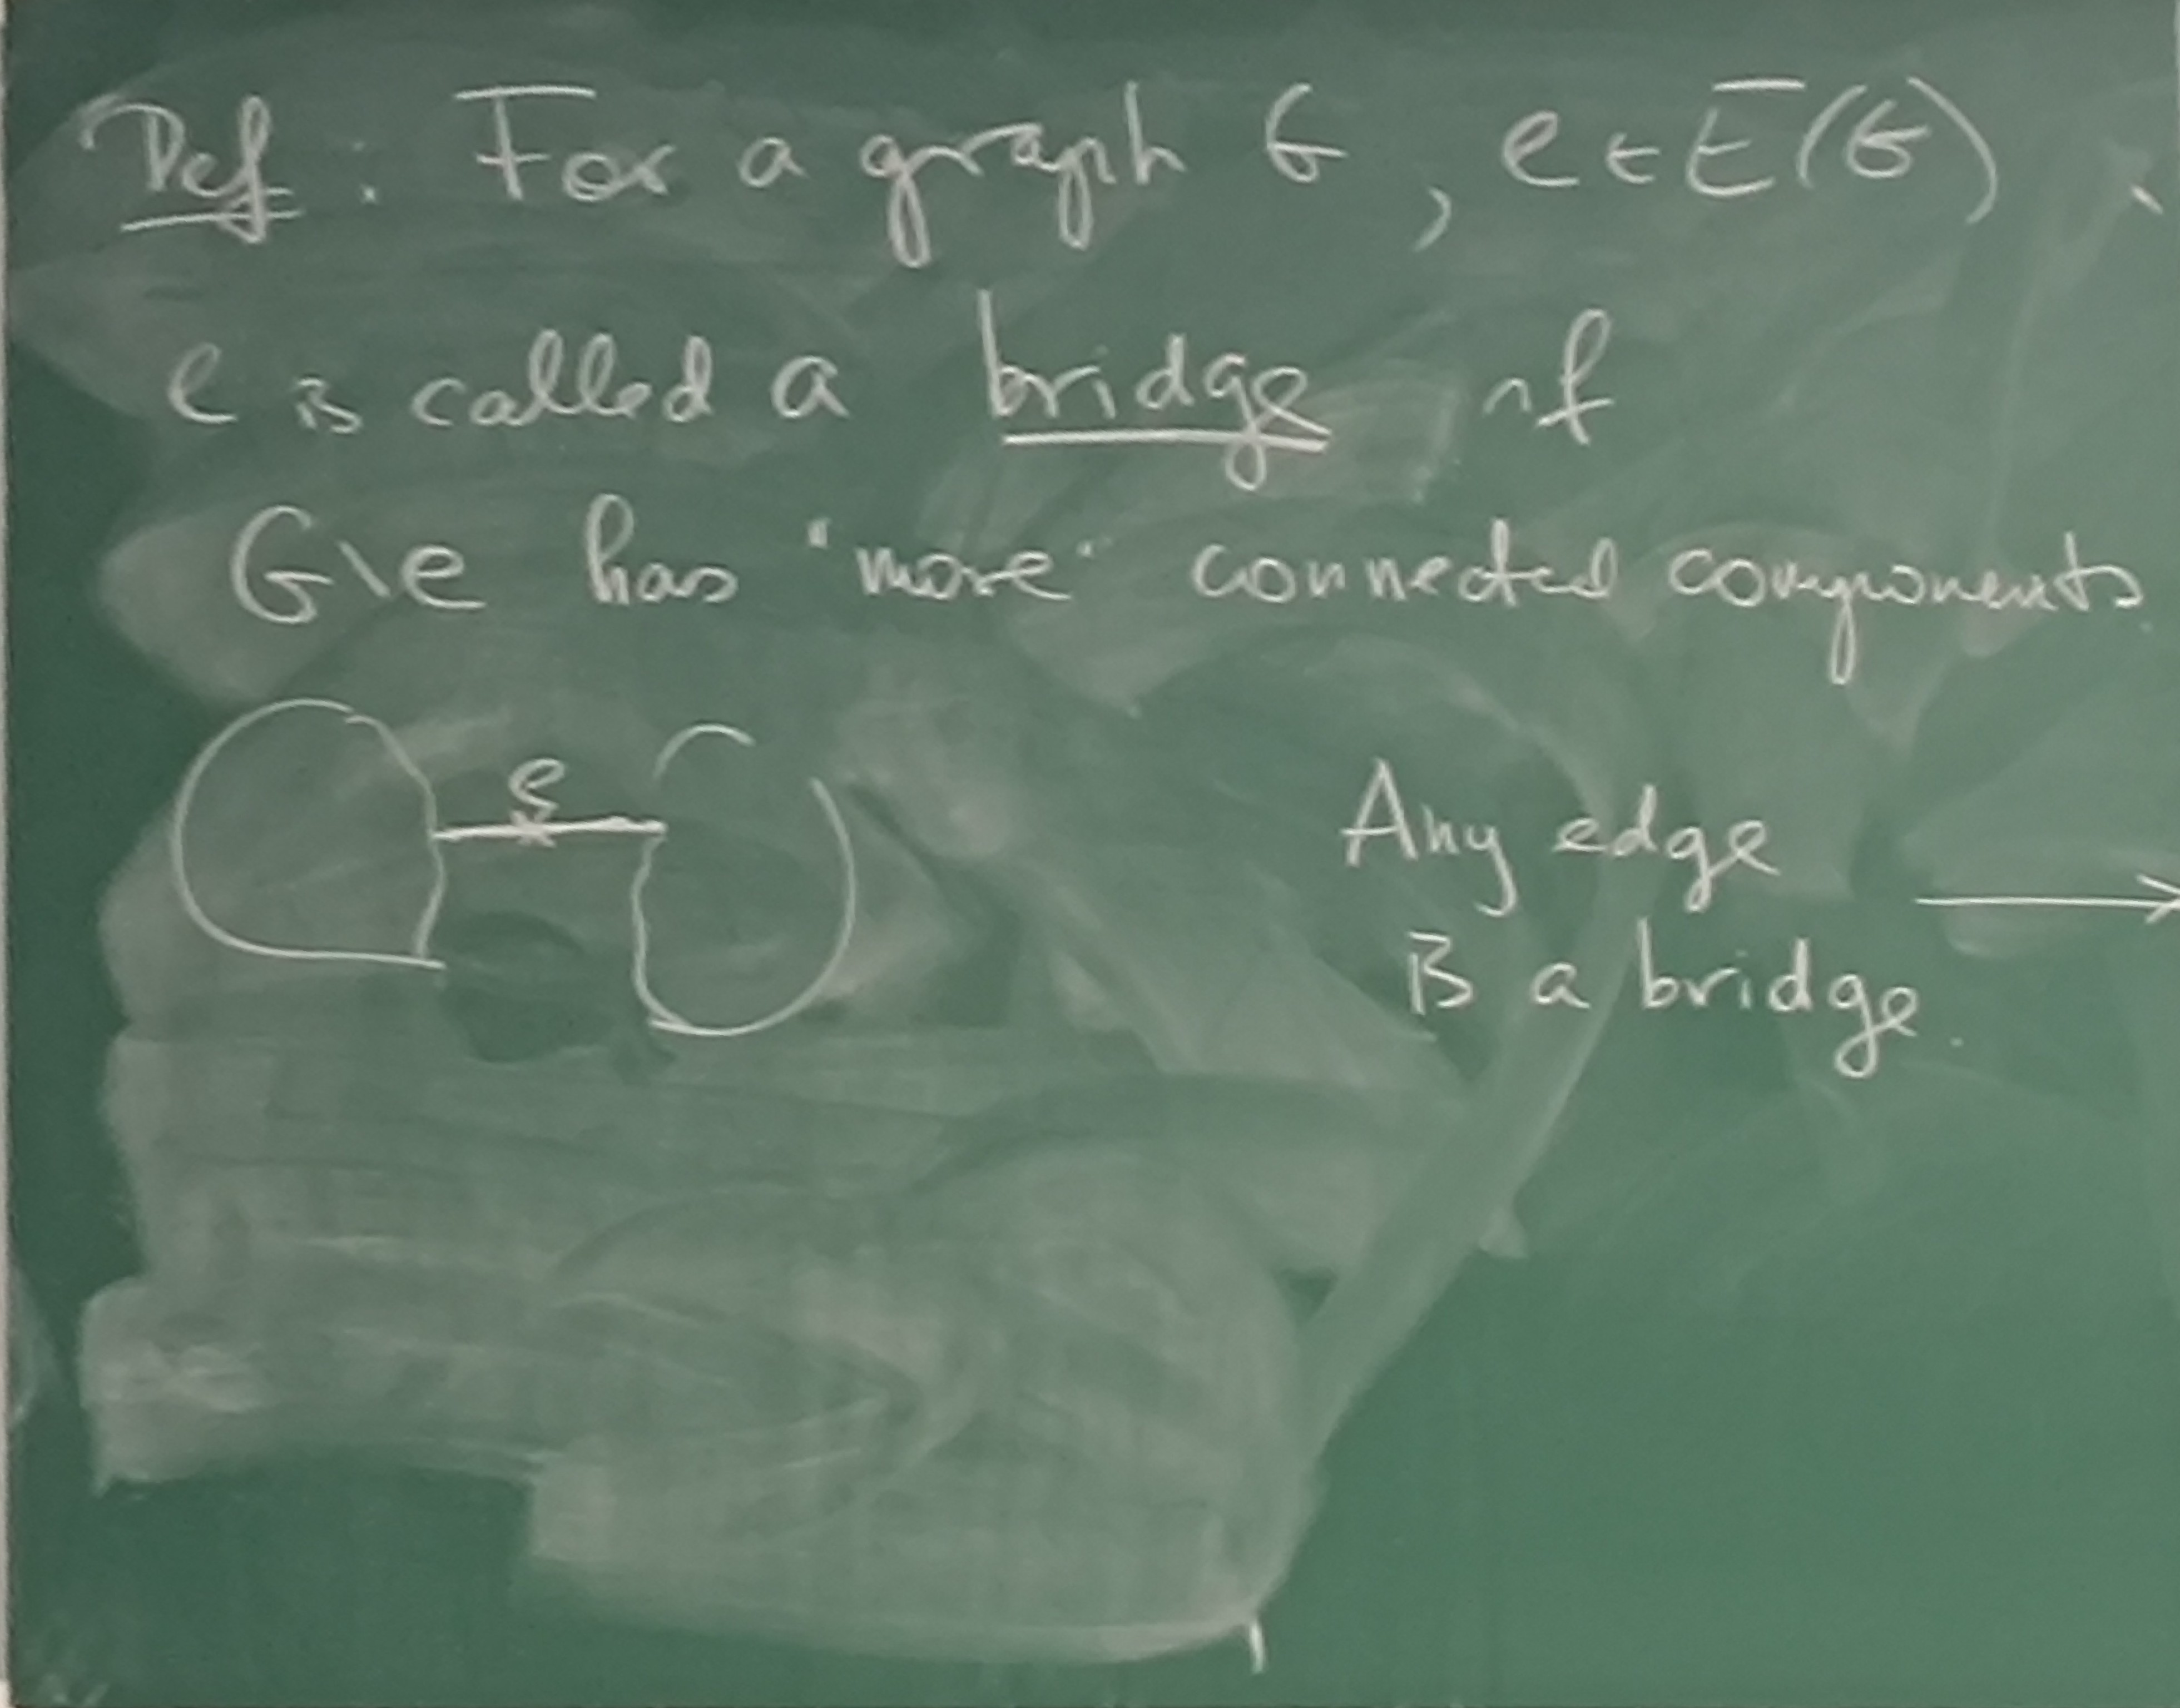 Def: For a graph G, e ∈ E(G),
e is called a bridge if
G\e has "more" connected components.
e
Any edge
is a bridge.